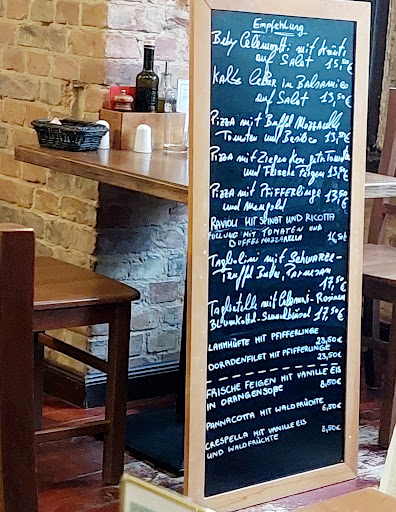 Empfehlung
Baby Calamaretti mit Kräuti
auf Salat 15,50 €
Kalbsleber in Balsamico
auf Salat 13,50 €
Pizza mit Büffel Mozzarella
Tomaten und Basilico 13,50 €
Pizza mit Ziegenkäse, getr. Tomaten
und Frische Feigen 13,50 €
Pizza mit Pfifferlinge 13,50
und Mangold €
RAVIOLI MIT SPINAT UND RICOTTA
FÜLLUNG MIT TOMATEN UND
BUFFELMOZZARELLA 16,50
Tagliolini mit Schwarze-
Trüffel Butter, Parmesan
17,50 €
Tagliatelle mit Calamari-Rosinen
17,50 €
LAMMHÜFTE MIT PFIFFERLINGE
23,50 €
DORADENFILET MIT PFIFFERLINGE
23,50 €
FRISCHE FEIGEN MIT VANILLE EIS
IN ORANGENSOßE 8,50 €
PANNACOTTA MIT WALDFRÜCHTE 6,50 €
CRESPELLA MIT VANILLE EIS 8,50 €
UND WALDFRÜCHTE